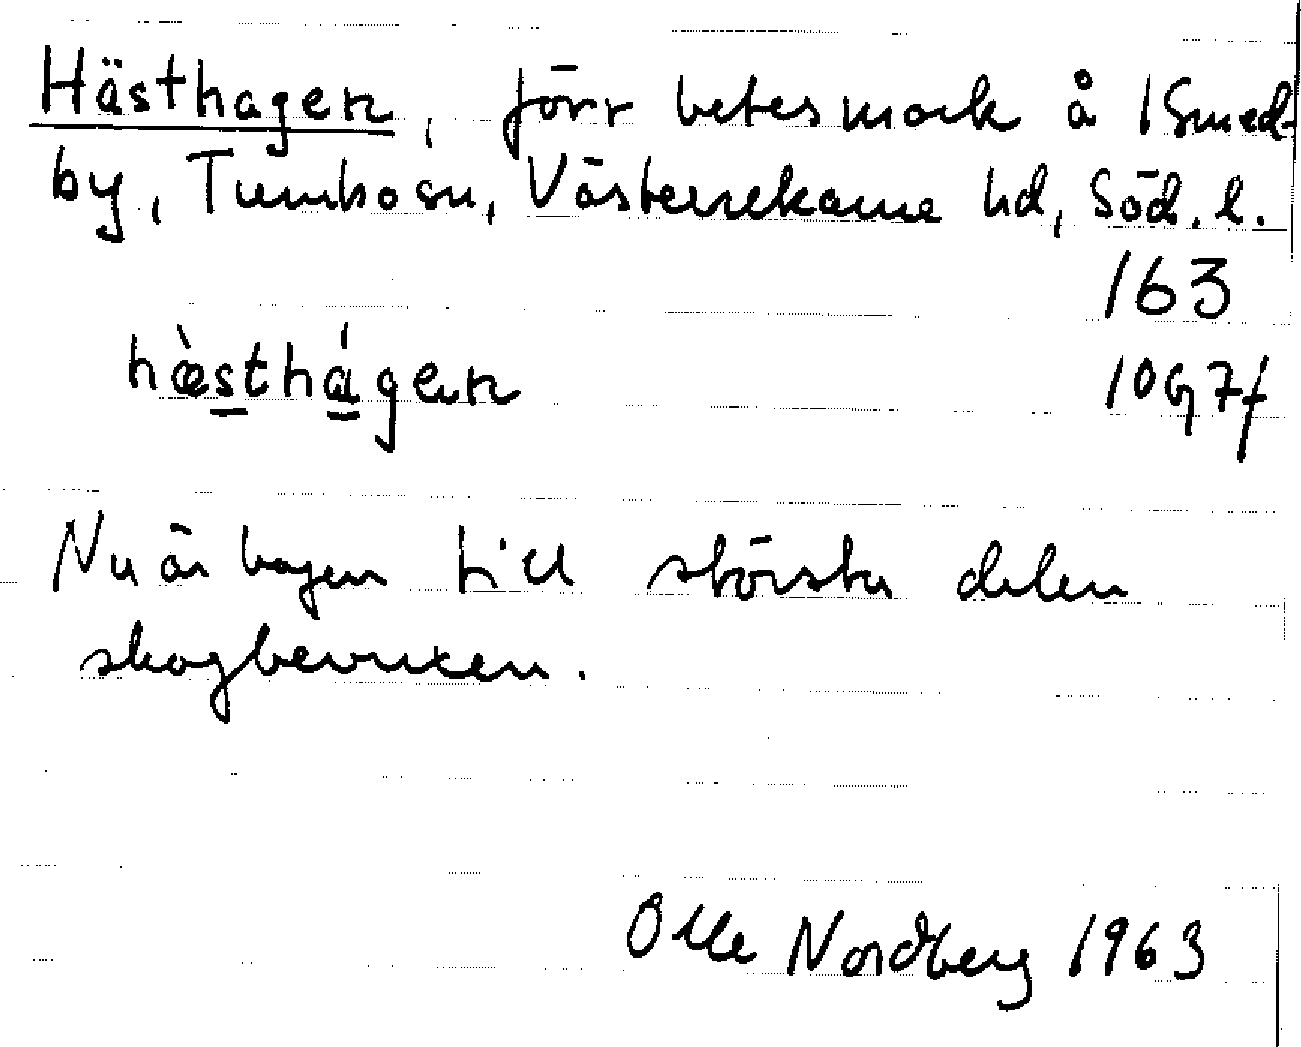 Hästhagen, förr betesmark å 1 Smed-
by, Tumbosn, Västerrekarne hd, Söd. l.
163
hæ̀sthágen
10G7f
Nu är hagen till största delen
skogbevuxen.
Olle Nordberg 1963